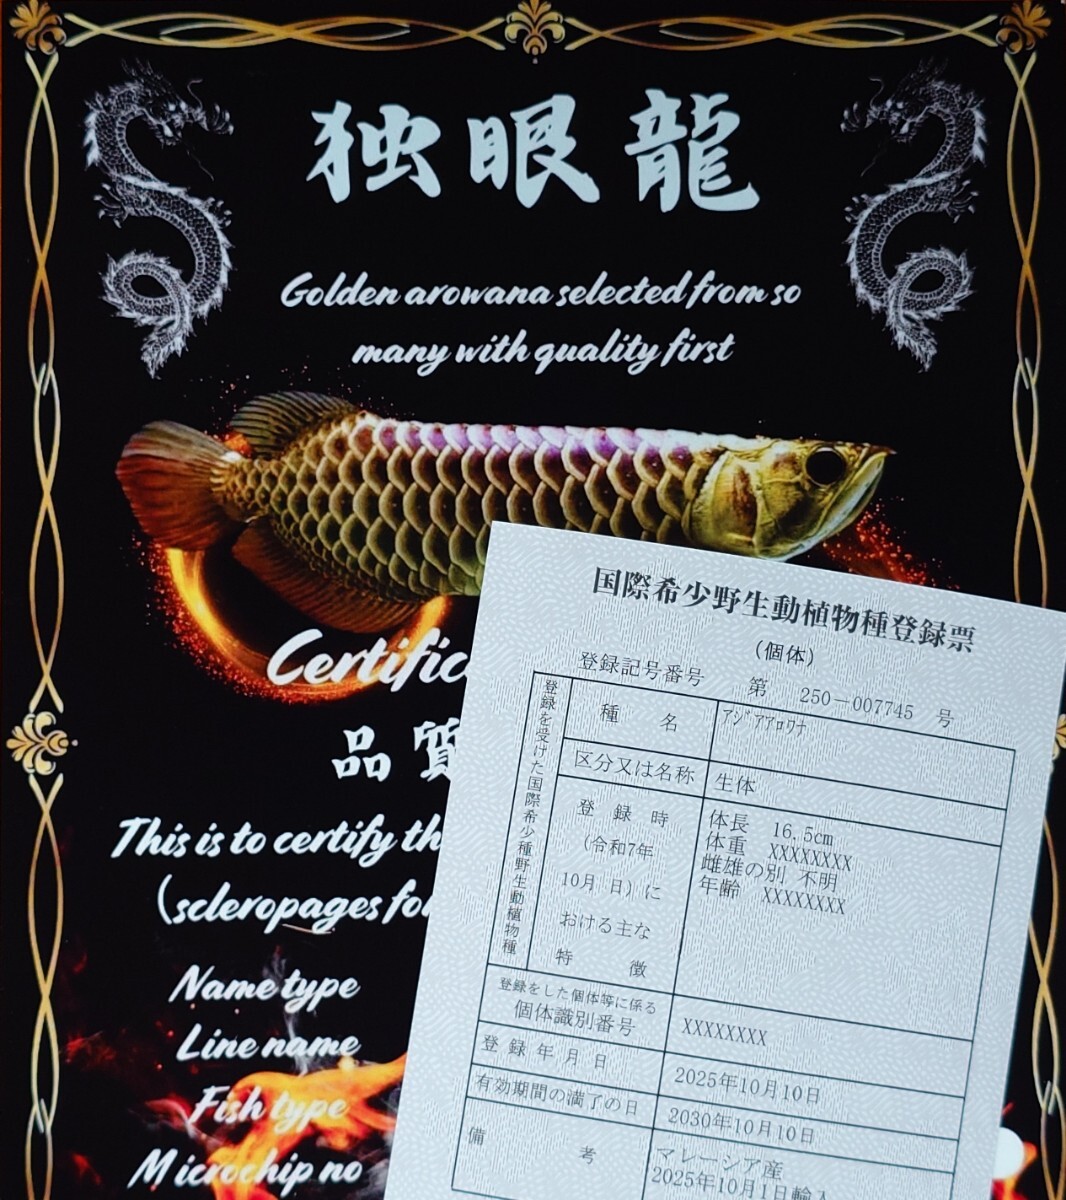 独眼龍
Golden arowana selected from so
many with quality first
Certific
品質
This is to certify th
(scleropages for
Name type
Line name
Fish type
Microchip no
国際希少野生動植物種登録票
(個体)
登録記号番号 第 250-007745 号
登録を受けた国際希少種野生動植物種
種名 アジアアロワナ
区分又は名称 生体
登録時
(令和7年
10月 日)に
おける主な
特徴
体長 16.5cm
体重 XXXXXXXX
雌雄の別 不明
年齢 XXXXXXXX
登録をした個体等に係る
個体識別番号 XXXXXXXX
登録年月日 2025年10月10日
有効期間の満了の日 2030年10月10日
備考
マレーシア産
2025年10月1日輸入